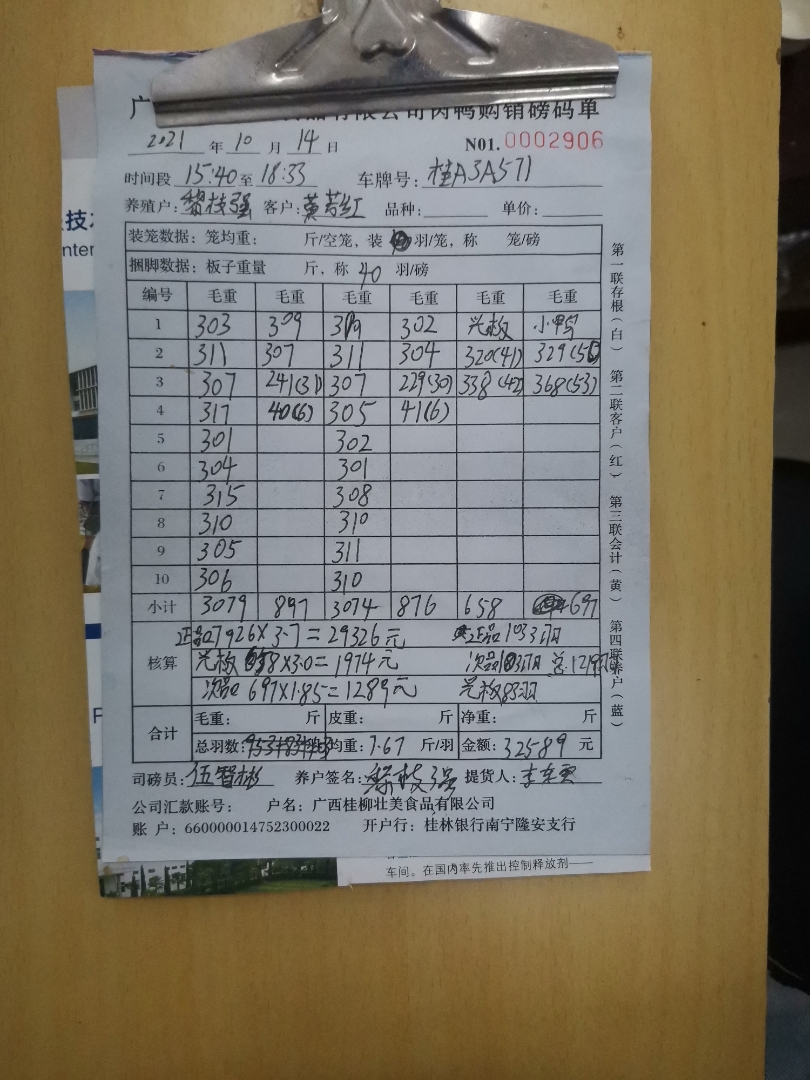 有限公司肉鸭购销磅码单
2021 年 10 月 14 日 N01.0002906
时间段 15:40 至 18:33 车牌号: 桂A3A571
养殖户: 黎枝强 客户: 黄若红 品种: 单价:
装笼数据: 笼均重: 斤/空笼, 装 羽/笼, 称 笼/磅
捆脚数据: 板子重量 斤, 称 40 羽/磅
编号 毛重 毛重 毛重 毛重 毛重 毛重
1 303 309 309 302 小鸭
2 311 307 311 304 320(41)
3 307 241(31) 307 229(30) 338(42) 368(53)
4 317 40(6) 305 41(6)
5 301 302
6 304 301
7 315 308
8 310 310
9 305 311
10 306 310
小计 3079 897 3074 876 658 697
核算
正品 7926×3.7=29326元 正品1033羽
658×3.0=1974元 次品103羽 总1219羽
次品 697×1.85=1289元 83羽
合计
毛重: 斤 皮重: 斤 净重: 斤
总羽数: 均重: 7.67 斤/羽 金额: 32589 元
司磅员: 伍智彬 养户签名: 黎枝强 提货人:
公司汇款账号: 户名: 广西桂柳壮美食品有限公司
账 户: 660000014752300022 开户行: 桂林银行南宁隆安支行
第一联存根(白) 第二联客户(红) 第三联会计(黄) 第四联养户(蓝)
车间。在国内率先推出控制释放剂——